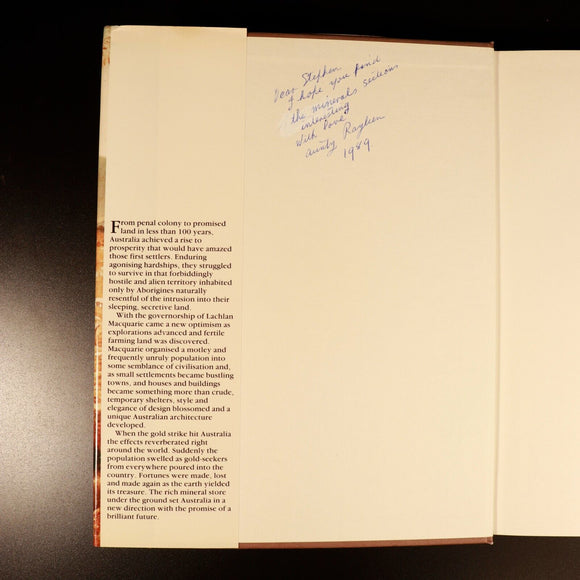 Dear Stephen
I hope you find
the minerals sections
interesting
With love
aunty Rayleen
1989
From penal colony to promised
land in less than 100 years,
Australia achieved a rise to
prosperity that would have amazed
those first settlers. Enduring
agonising hardships, they struggled
to survive in that forbiddingly
hostile and alien territory inhabited
only by Aborigines naturally
resentful of the intrusion into their
sleeping, secretive land.
With the governorship of Lachlan
Macquarie came a new optimism as
explorations advanced and fertile
farming land was discovered.
Macquarie organised a motley and
frequently unruly population into
some semblance of civilisation and,
as small settlements became bustling
towns, and houses and buildings
became something more than crude,
temporary shelters, style and
elegance of design blossomed and a
unique Australian architecture
developed.
When the gold strike hit Australia
the effects reverberated right
around the world. Suddenly the
population swelled as gold-seekers
from everywhere poured into the
country. Fortunes were made, lost
and made again as the earth yielded
its treasure. The rich mineral store
under the ground set Australia in a
new direction with the promise of a
brilliant future.